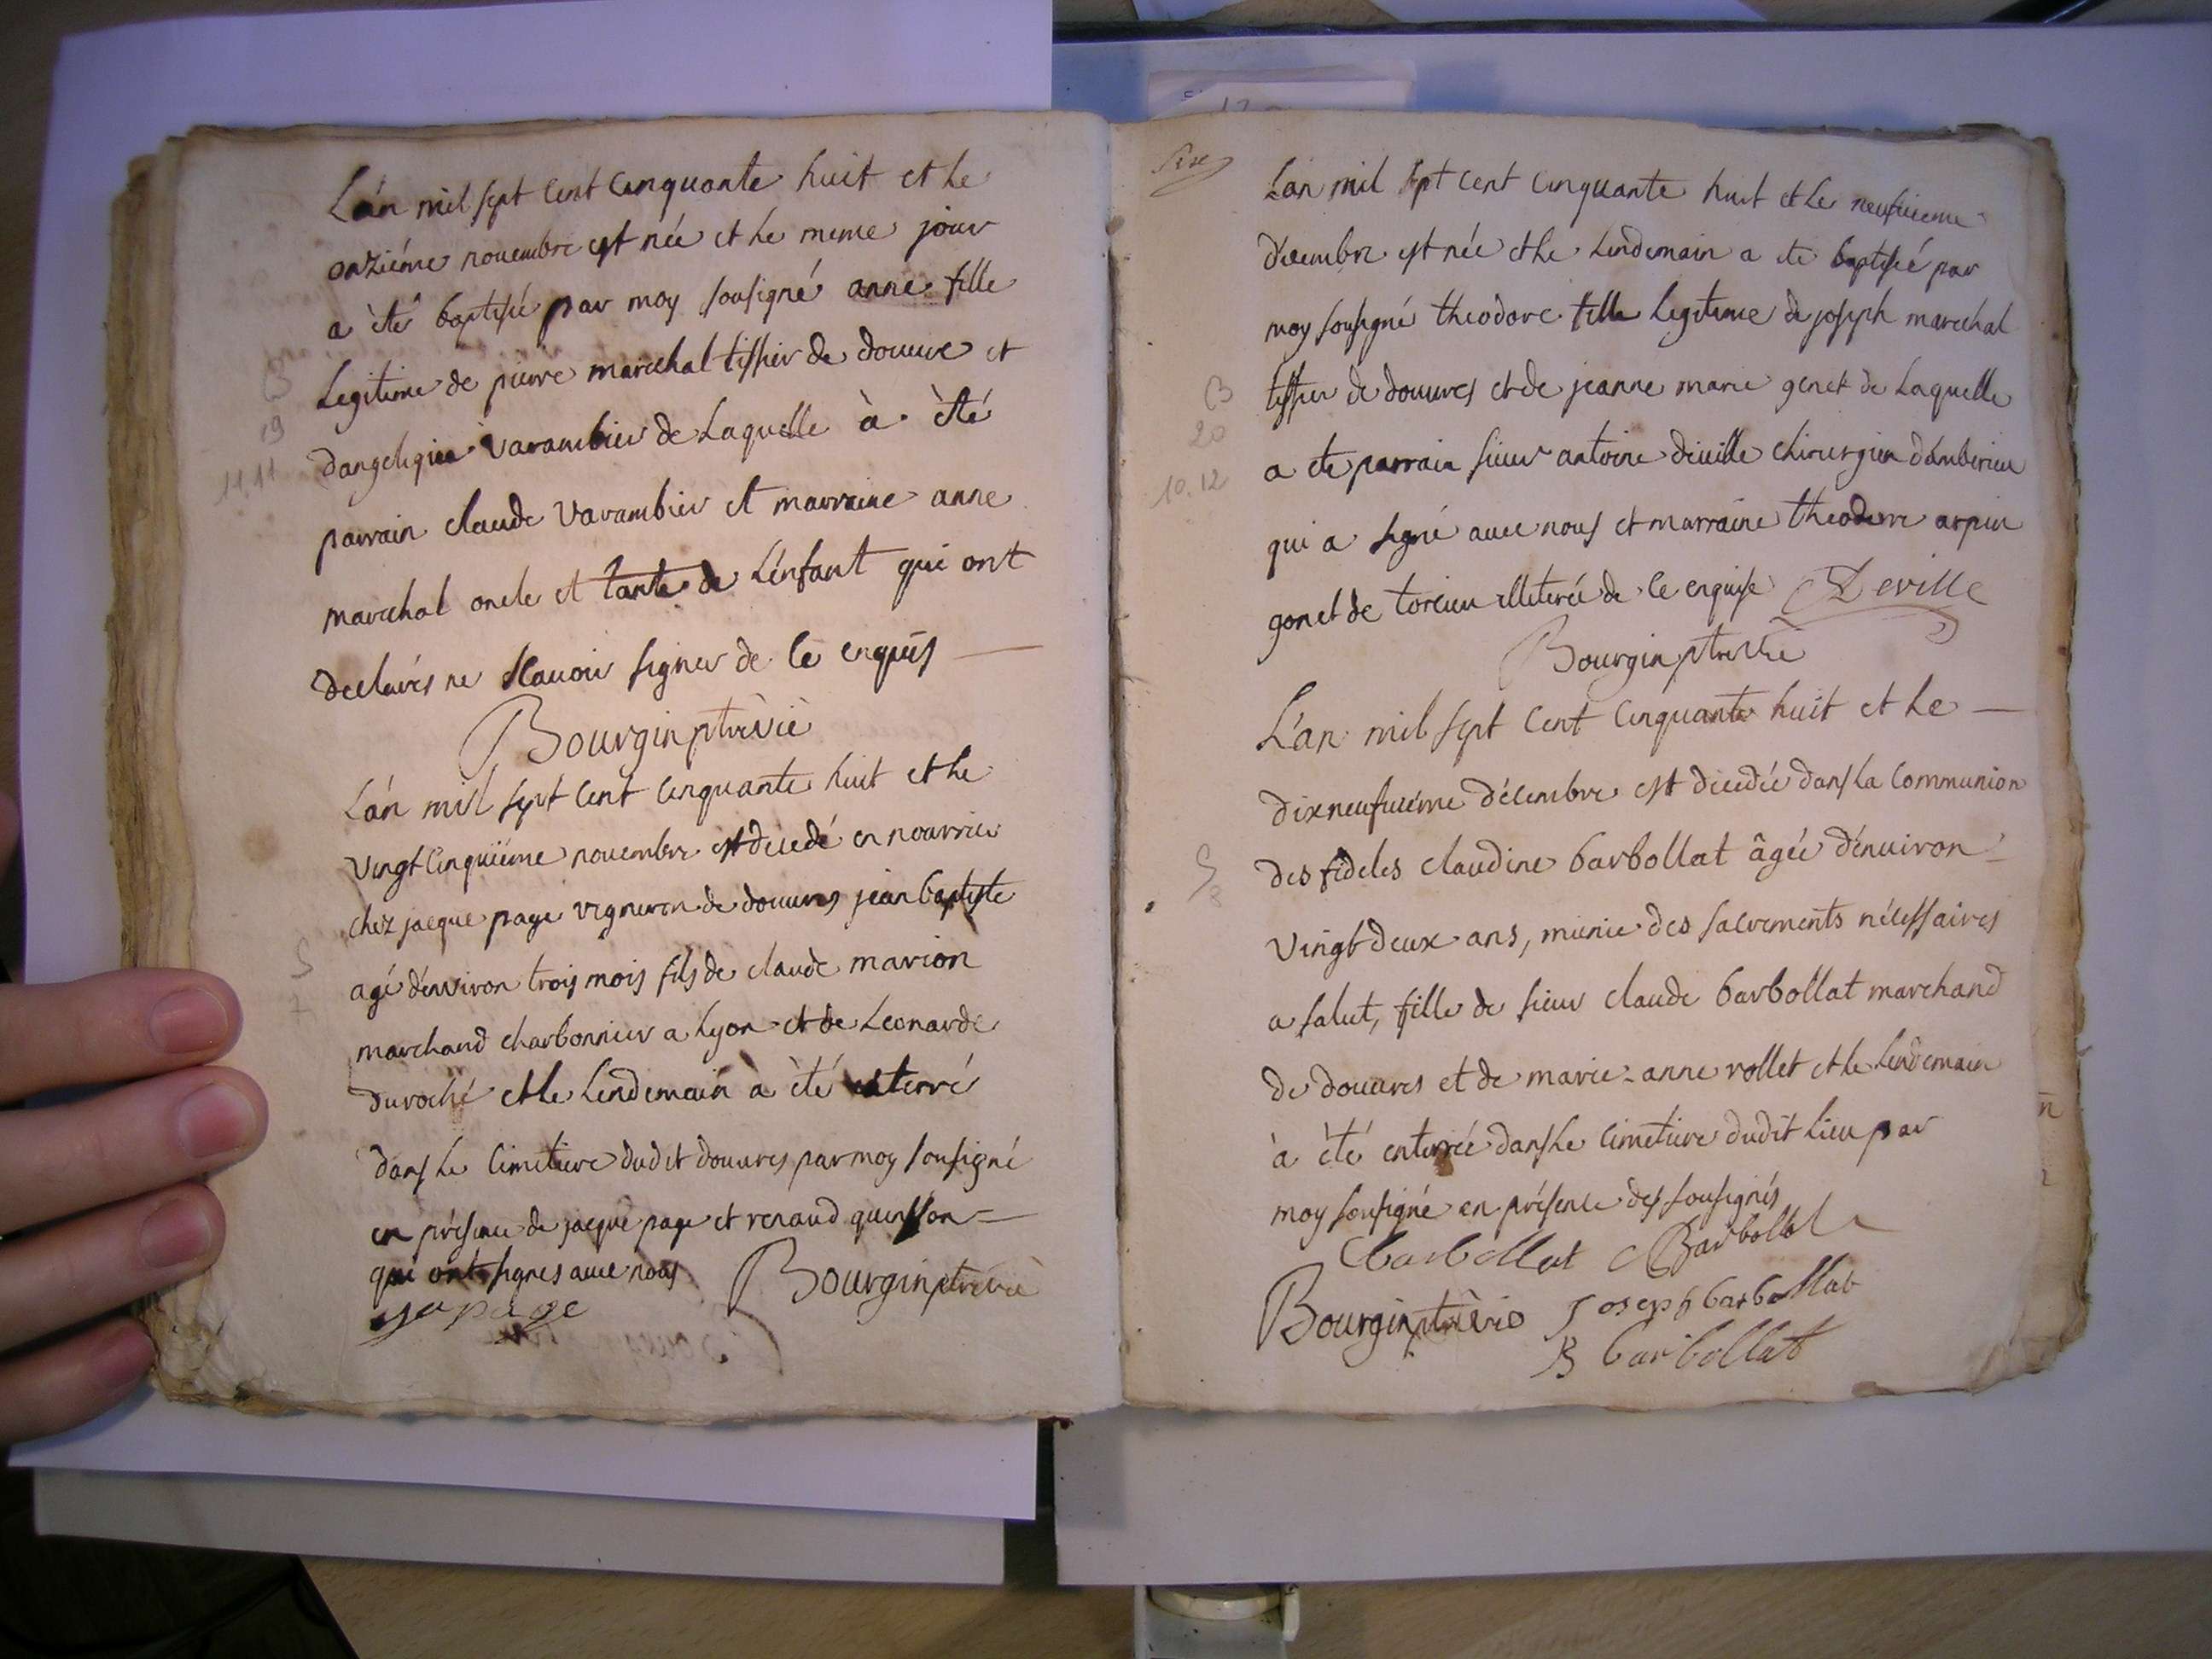 L'an mil sept cent cinquante huit et le
onziéme nouembre est née et le meme jour
a été baptisée par moy sousigné anne fille
Legitime de pierre marechal tissier de douure et
dangelique varambier de Laquelle à été
parrain claude varambier et marraine anne
marechal oncle et tante de L'enfant qui ont
declarés ne scauoir signer de ce enquis
Bourgin ptre vic
L'an mil sept cent cinquante huit et le
vingt cinquiéme nouembre est decedé en nourrice
chez jacque page vigneron de douures jean baptiste
agé d'environ trois mois fils de claude marion
marchand charbonnier a Lyon et de Leonarde
duroché et le Lendemain a été enterré
dans le cimetiere dudit douures par moy sousigné
en présence de jacque page et renaud quinsson
qui ont signés auec nous Bourgin ptre vic
ja page
B
19
11.11
S
7
Six
L'an mil sept cent cinquante huit et le neufuieme
décembre est née et le Lendemain a ete baptisée par
moy sousigné theodore fille Legitime de joseph marechal
tissier de douures et de jeanne marie genet de Laquelle
a ete parrain sieur antoine deuille chirurgien d'amberieu
qui a signé auec nous et marraine theodore arpin
gonet de torcieu illiterée de ce enquise Deville
Bourgin ptre vic
L'an mil sept cent cinquante huit et le
dixneufuiéme décembre est decedée dans la communion
des fideles claudine barbollat âgée d'enuiron
vingt deux ans, munie des sacrements nécessaires
a salut, fille de sieur claude barbollat marchand
de douures et de marie-anne rollet et le lendemain
à été enterrée dans le cimetiere dudit lieu par
moy sousigné en présence des sousignés
C barbollat Barbollat
Bourgin ptre vic joseph barbollat
B barbollat
B
20
10.12
S
8